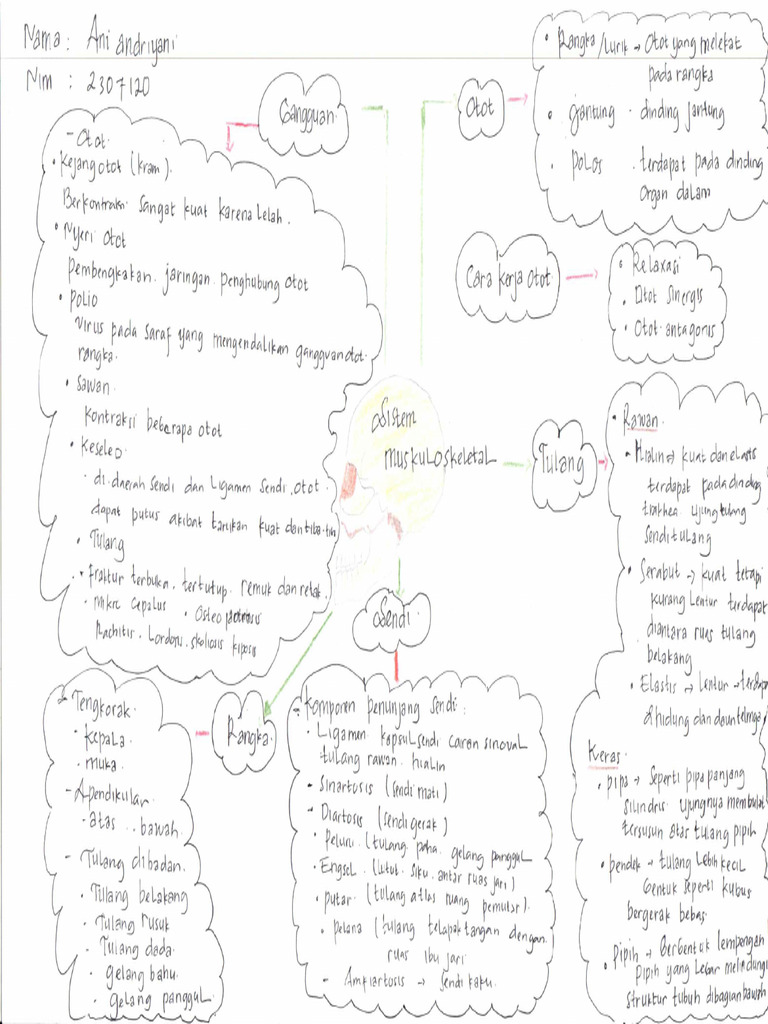 Nama : Ani andriyani
Nim : 2307120
Gangguan
- Otot.
• Kejang otot (kram).
Berkontraksi sangat kuat karena Lelah.
• Nyeri Otot
pembengkakan. jaringan penghubung otot
• Polio
Virus pada saraf yang mengendalikan gangguan otot
rangka.
• Sawan.
Kontraksi beberapa otot
• Keseleo.
• di daerah sendi dan Ligamen Sendi. otot.
dapat putus akibat tarikan kuat dan tiba-tiba
• Tulang
• Fraktur terbuka. tertutup. remuk dan retak.
• Mikro cepalus • Osteo porosis
Rachitis. Lordosis. skoliosis kiposis
Otot
• Rangka/Lurik → Otot yang melekat
pada rangka
• Jantung . dinding jantung
• Polos . terdapat pada dinding
organ dalam
Cara kerja otot
• Relaxasi
• Otot Sinergis
• Otot antagonis
Sistem
muskuloskeletal
Tulang
• Rawan.
• Hialin → kuat dan elastis
terdapat pada dinding
trakhea ujung tulang
sendi tulang
• Serabut → kuat tetapi
kurang Lentur terdapat
diantara ruas tulang
belakang
• Elastis → Lentur → terdapat
di hidung dan daun telinga
Keras.
• pipa → Seperti pipa panjang
silindris ujungnya membulat
tersusun atas tulang pipih
• pendek → tulang Lebih kecil
bentuk seperti kubus
bergerak bebas.
• Pipih → Berbentuk lempengan
pipih yang Lebar melindungi
struktur tubuh dibagian bawah
Sendi
- Komponen penunjang sendi :
• Ligamen kapsul sendi cairan sinoval
tulang rawan. hialin
- Sinartosis (sendi mati)
- Diartosis (sendi gerak)
• Peluru (tulang paha. gelang panggul
• Engsel (lutut. siku. antar ruas jari)
• putar (tulang atlas ruang pemutar).
• pelana (tulang telapak tangan dengan
ruas ibu jari
- Amfiartosis → Sendi kaku.
Rangka
- Tengkorak
• Kepala
• muka.
- Apendikular
- atas .. bawah
- Tulang dibadan.
• Tulang belakang
• Tulang rusuk
• Tulang dada.
• gelang bahu.
• gelang panggul.